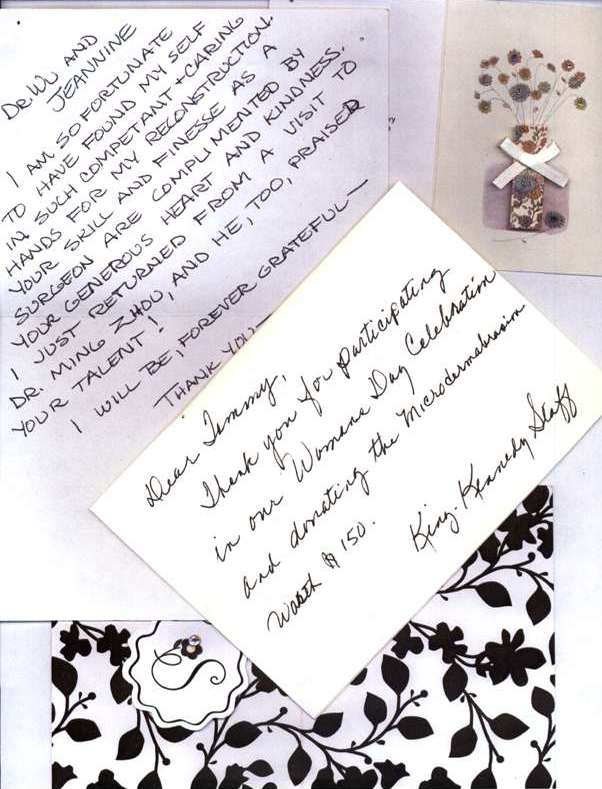 DR. WU AND
JEANNINE
I AM SO FORTUNATE
TO HAVE FOUND MY SELF
IN SUCH COMPETANT + CARING
HANDS FOR MY RECONSTRUCTION.
YOUR SKILL AND FINESSE AS A
SURGEON ARE COMPLIMENTED BY
YOUR GENEROUS HEART AND KINDNESS.
I JUST RETURNED FROM A VISIT TO
DR. MING ZHOU, AND HE, TOO, PRAISED
YOUR TALENT!
I WILL BE, FOREVER GRATEFUL—
THANK YOU—
Dear Tammy,
Thank you for participating
in our Womens Day Celebration
and donating the Microdermabrasion
Worth $150.
King-Kennedy Staff
S